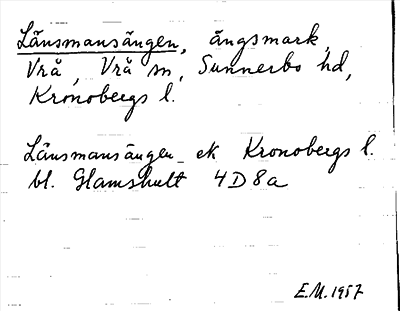 Länsmansängen, ängsmark,
Vrå, Vrå sn, Sunnerbo hd,
Kronobergs l.
Länsmansängen_ ek Kronobergs l.
bl. Glamshult 4D8a
E.M. 1957